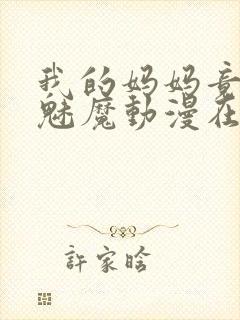 我的妈妈竟
魅魔動漫在
許家晗